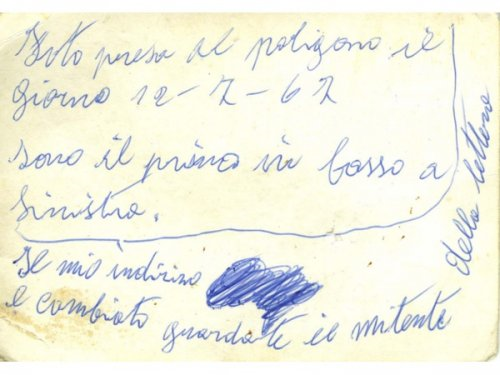 Foto presa al poligono il
giorno 12-7-67
sono il primo in basso a
sinistra.
Il mio indirizo
e cambiato guardate il mitente
della lettera